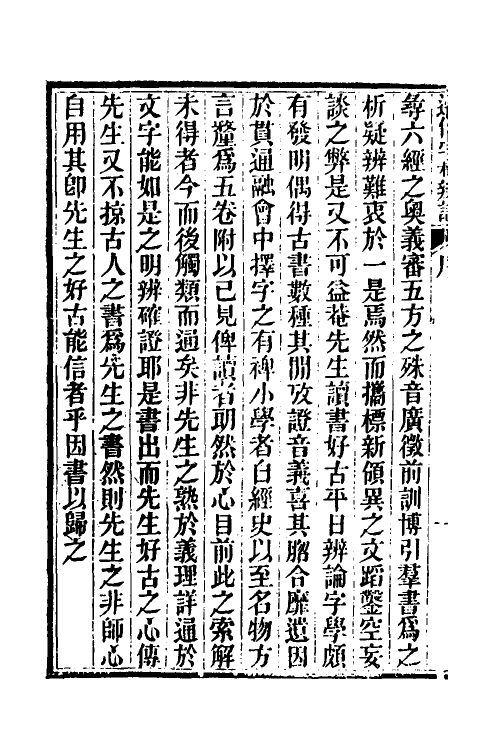 尋六經之奧義審五方之殊音廣徵前訓博引羣書爲之
析疑辨難衷於一是焉然而攟標新領異之文蹈鑿空妄
談之弊是又不可益菴先生讀書好古平日辨論字學頗
有發明偶得古書數種其閒攷證音義喜其脗合靡遺因
於貫通融會中擇字之有裨小學者自經史以至名物方
言釐爲五卷附以己見俾讀者朗然於心目前此之索解
未得者今而後觸類而通矣非先生之熟於義理詳通於
文字能如是之明辨確證耶是書出而先生好古之心傳
先生又不掠古人之書爲先生之書然則先生之非師心
自用其卽先生之好古能信者乎因書以歸之